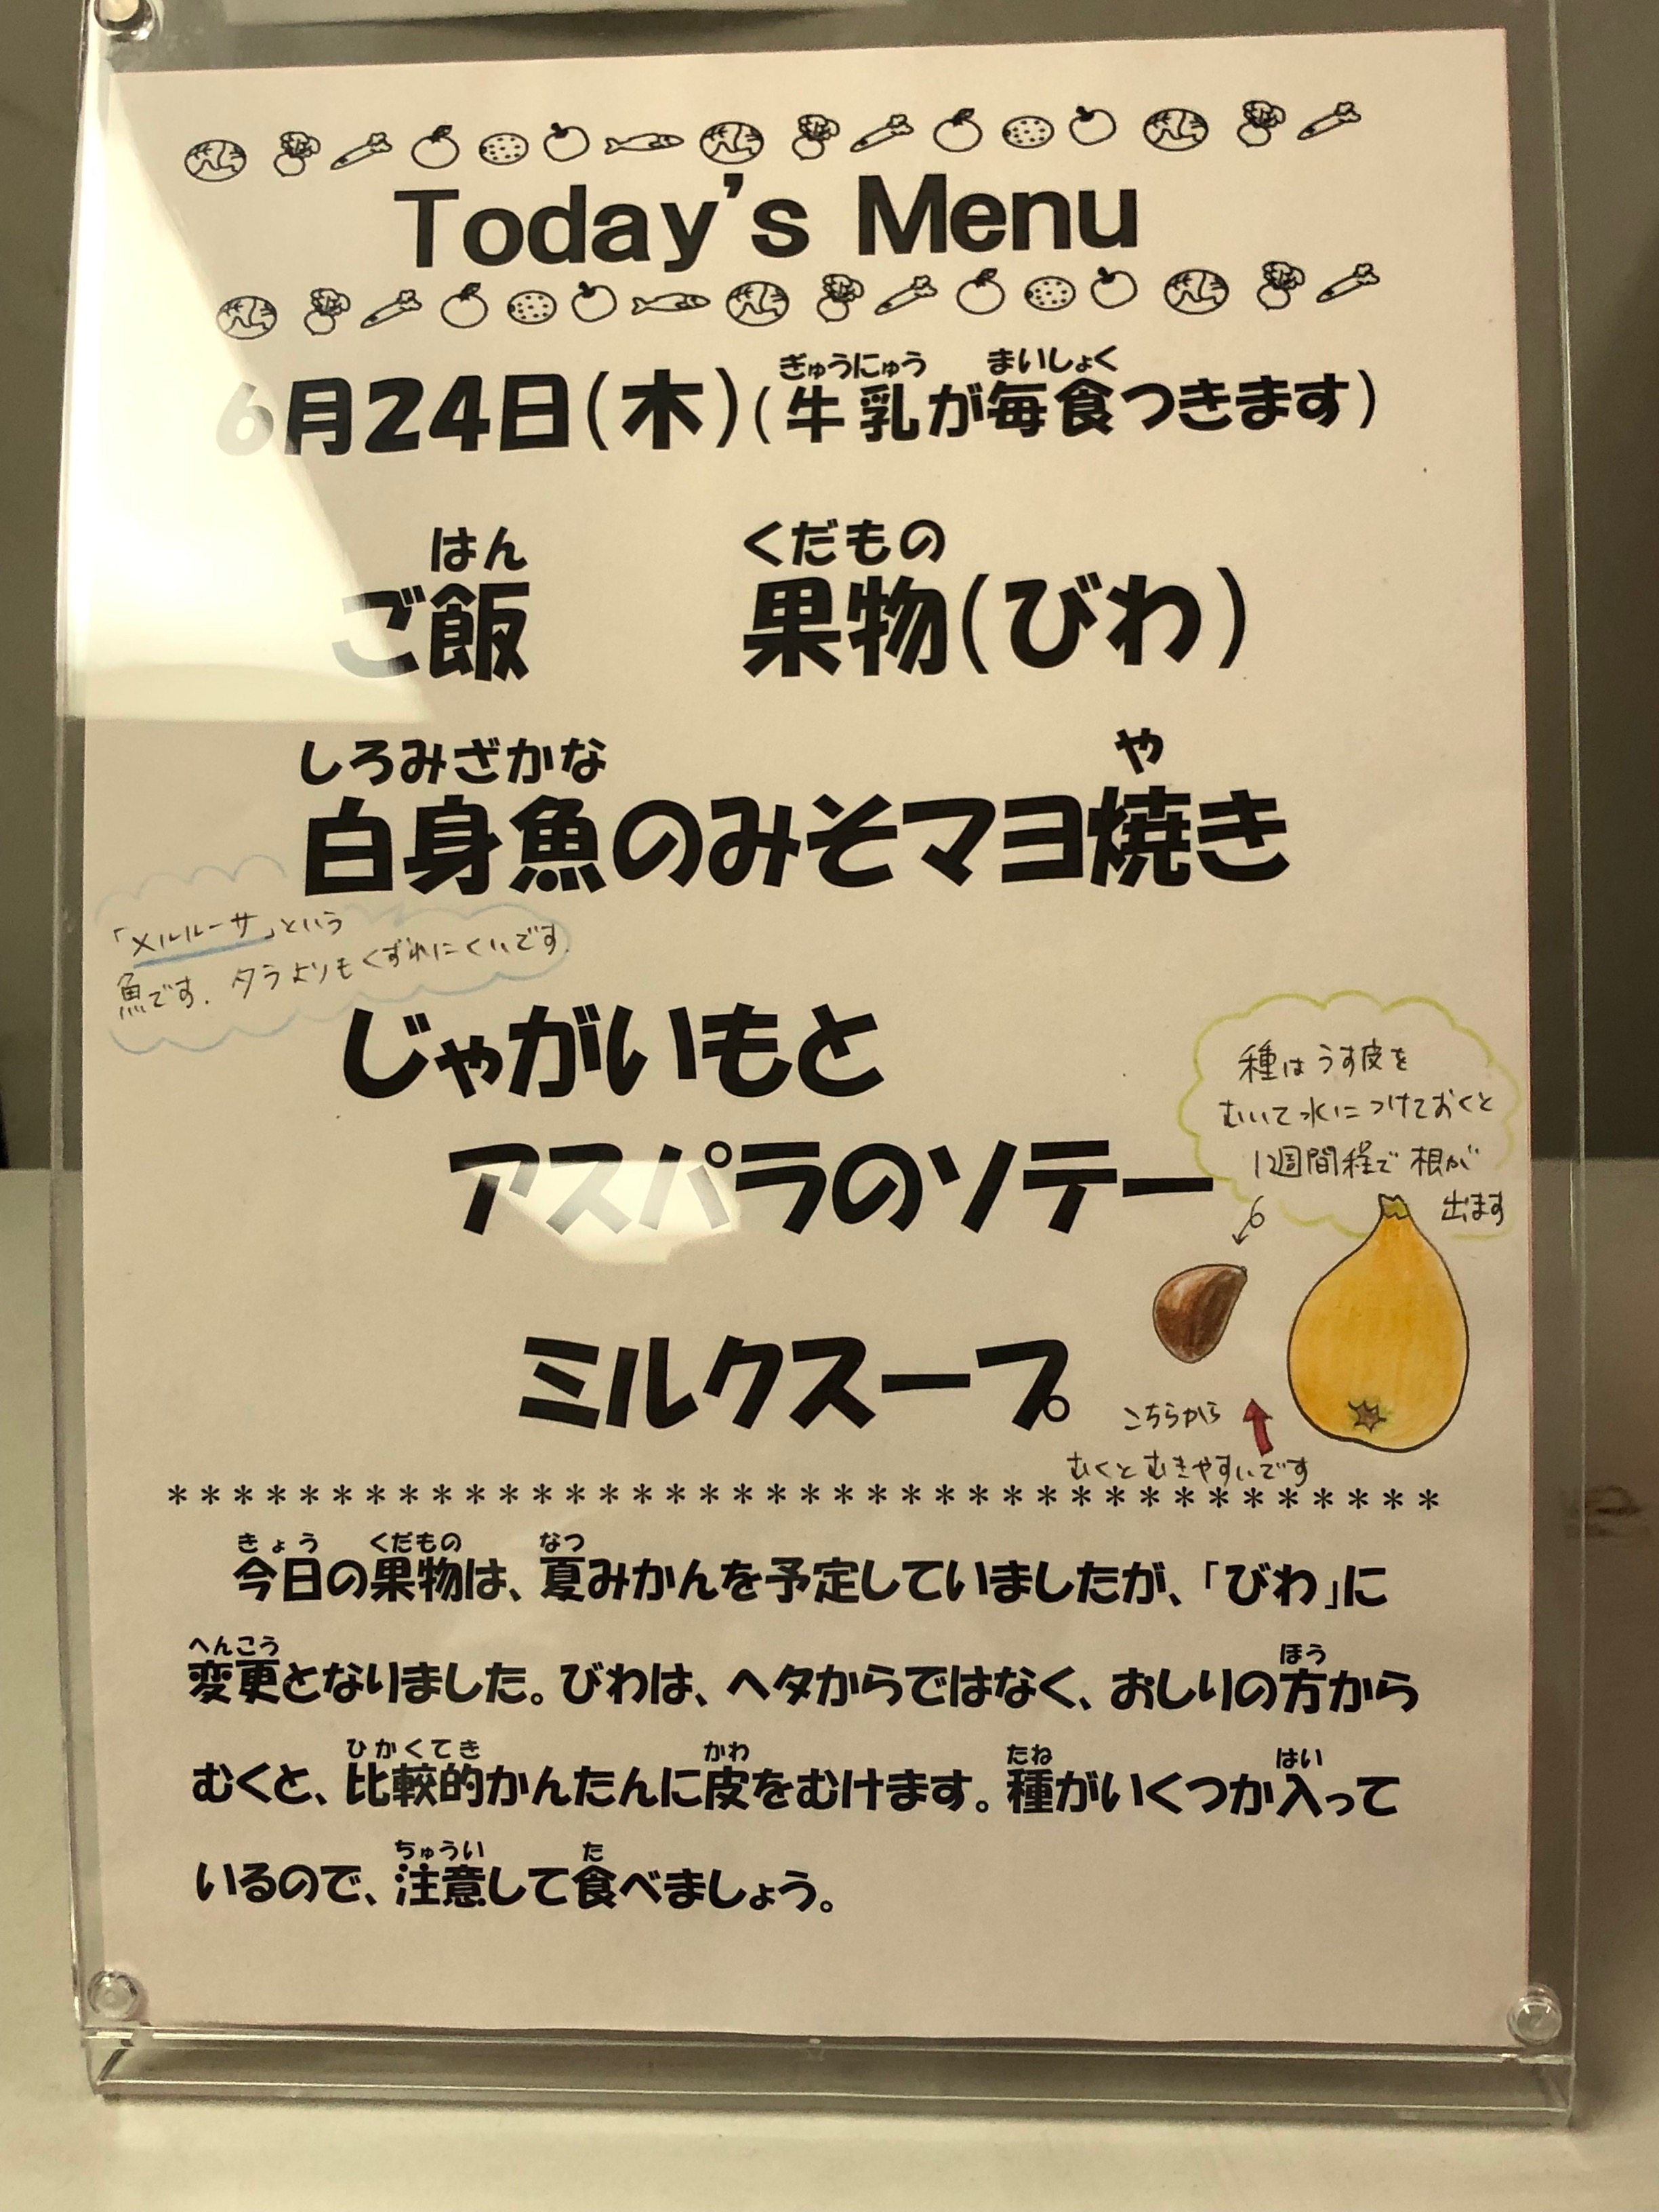 Today's Menu
ぎゅうにゅう まいしょく
6月24日(木)(牛乳が毎食つきます)
はん くだもの
ご飯 果物(びわ)
しろみざかな や
白身魚のみそマヨ焼き
「メルルーサ」という
魚です.タラよりもくずれにくいです.
じゃがいもと
アスパラのソテー
種はうす皮を
むいて水につけておくと
1週間程で根が
出ます
ミルクスープ
こちらから
むくとむきやすいです
**************************************
きょう くだもの なつ
今日の果物は、夏みかんを予定していましたが、「びわ」に
へんこう ほう
変更となりました。びわは、ヘタからではなく、おしりの方から
ひかくてき かわ たね はい
むくと、比較的かんたんに皮をむけます。種がいくつか入って
ちゅうい た
いるので、注意して食べましょう。